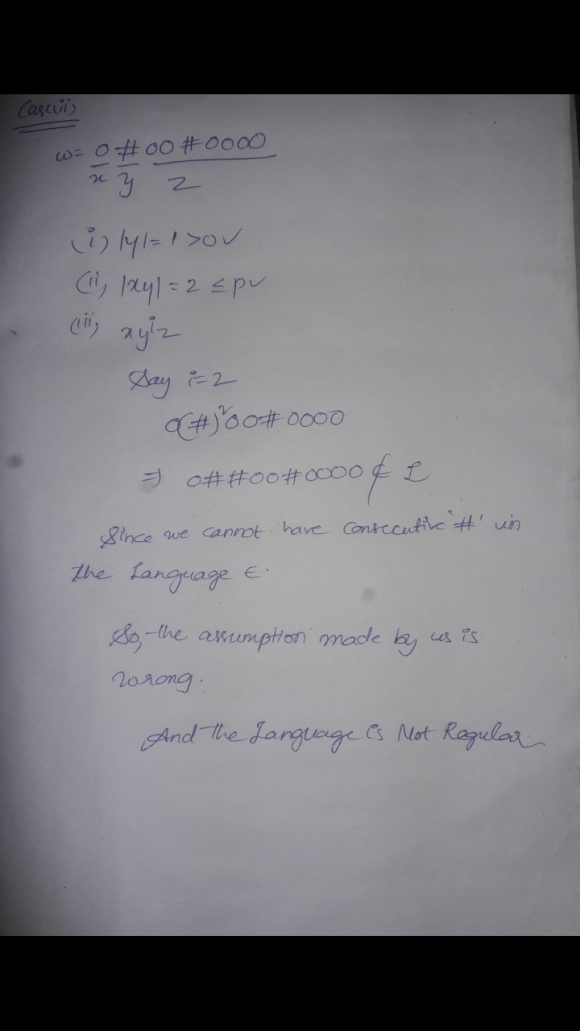 Case(ii)
w= 0 # 00 # 0000
x y z
(i) |y| = 1 >0 ✓
(ii) |xy| = 2 ≤ p ✓
(iii) xyⁱz
Say i=2
0(#)²00#0000
⇒ 0##00#0000 ∉ L
Since we cannot have consecutive '#' in
the Language ∈.
So, the assumption made by us is
wrong.
And the Language is Not Regular